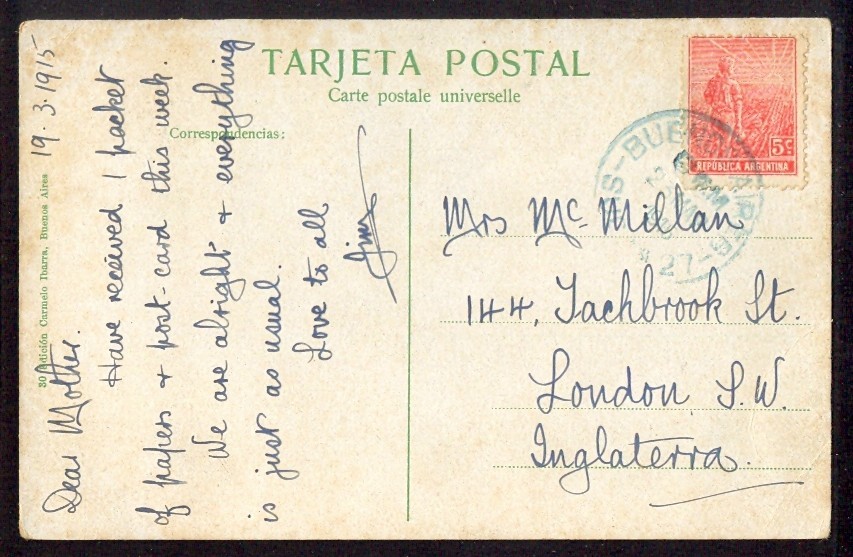 TARJETA POSTAL
Carte postale universelle
Correspondencias:
30 Edición Carmelo Ibarra, Buenos Aires
19.3.1915
Dear Mother.
Have received 1 packet
of papers + post-card this week.
We are alright + everything
is just as usual.
Love to all
Jim
5c
REPÚBLICA ARGENTINA
Mrs McMillan
144, Tachbrook St.
London S.W.
Inglaterra.